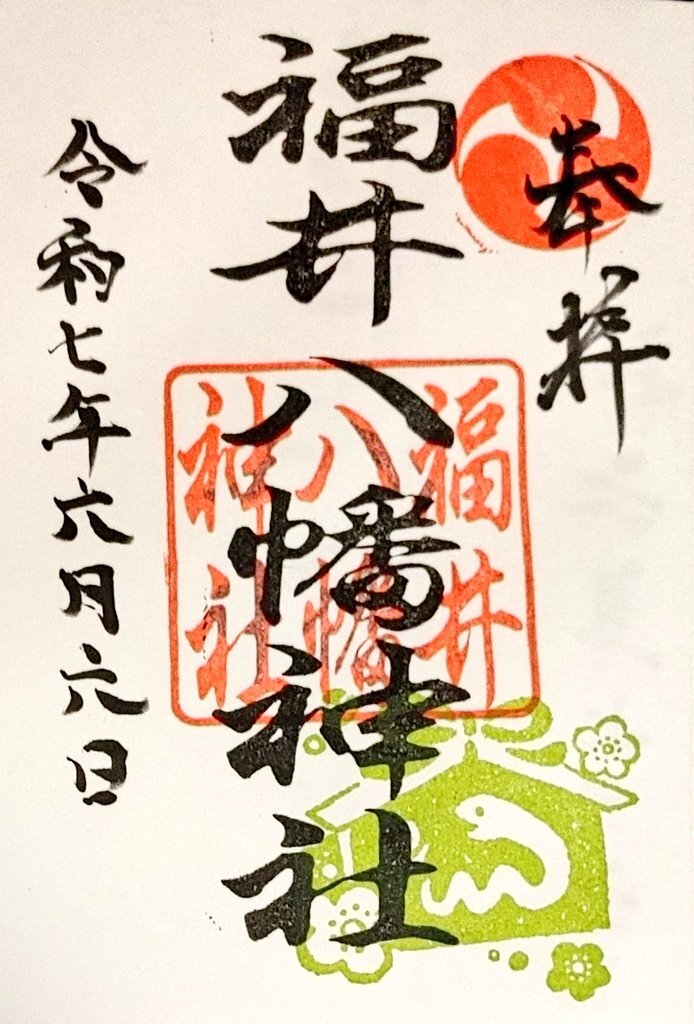 奉拝
福井八幡神社
福井
八幡
神社
令和七年六月六日